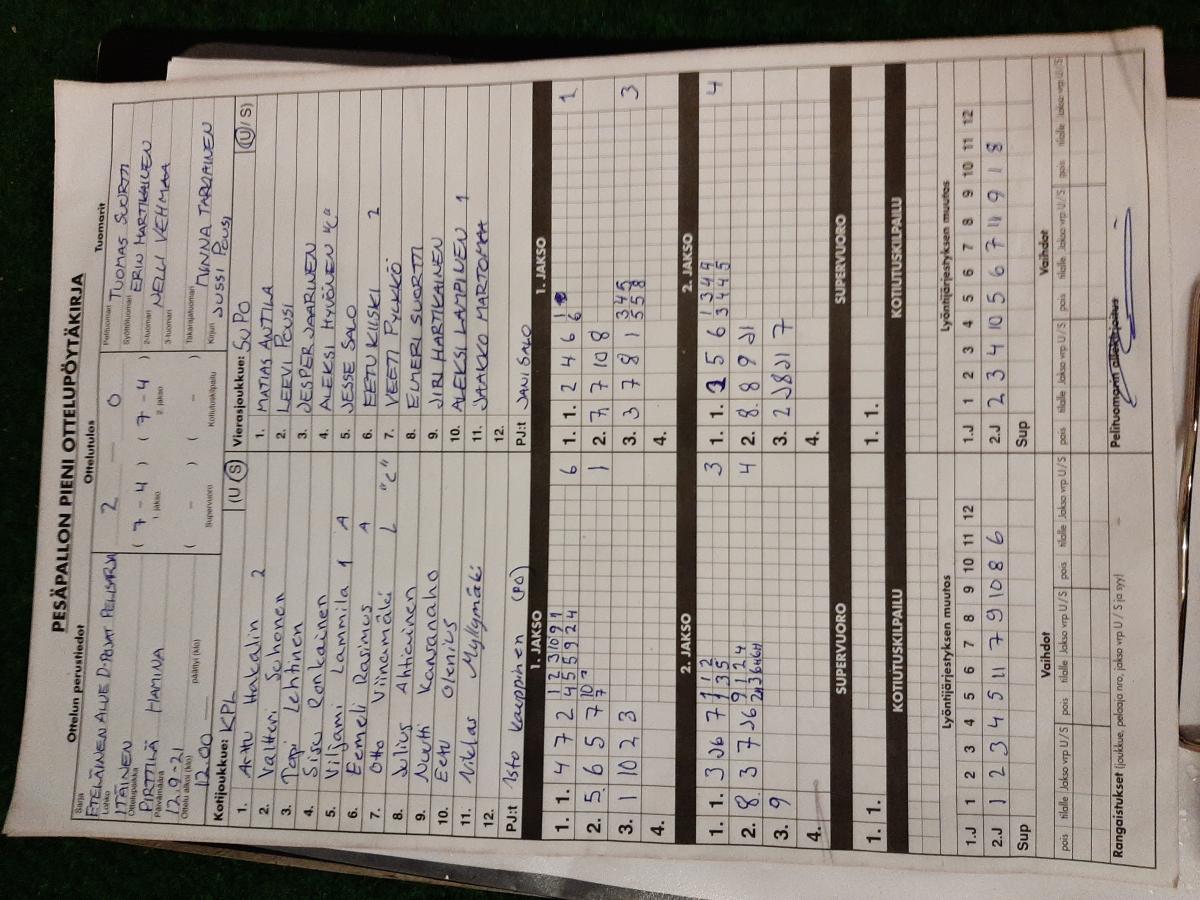 PESÄPALLON PIENI OTTELUPÖYTÄKIRJA
Ottelun perustiedot
Ottelutulos
Tuomarit
Sarja
ETELÄINEN ALUE D-POJAT PELISARJA
Lohko
ITÄINEN
Ottelupaikka
PIRTTILÄ HAMINA
Päivämäärä
12.9-21
Ottelu alkoi (klo) päättyi (klo)
12.00
2 — 0
( 7 - 4 ) ( 7 - 4 )
1. jakso 2. jakso
( - ) ( - )
Supervuoro Kotiutuskilpailu
Pelituomari TUOMAS SUORTTI
Syöttötuomari ERIN MARTIKAINEN
2-tuomari NELLI VEHMAA
3-tuomari
Takarajatuomari
Kirjuri MINNA TARGIAINEN
JUSSI POUSI
Kotijoukkue: KPL (U/S)
1. Arttu Hakalin 2
2. Valtteri Sohonen
3. Topi Lehtinen
4. Sisu Ronkainen
5. Viljami Lammila 1 A
6. Eemeli Rasimus A
7. Otto Viinamäki L "C"
8. Julius Ahtiainen
9. Nuutti Kansanaho
10. Eetu Olenius
11. Niklas Myllymäki
12.
PJ:t Isto Kauppinen (PO)
Vierasjoukkue: SUPO (U/S)
1. MATIAS ANTTILA
2. LEEVI POUSI
3. JESPER JAARINEN
4. ALEKSI HYVÖNEN "C"
5. JESSE SALO
6. EETU KIISKI
7. VEETI PYLKKÖ 2
8. ELMERI SUORTTI
9. JIRI HARTIKAINEN
10. ALEKSI LAMPINEN 1
11. JAAKKO MARTOMAA
12.
PJ:t JANI SALO
1. JAKSO
1. JAKSO
1. 1. 4 7 2 6
2. 5 6 5 7 1
3. 1 10 2 3
4.
1. 1. 2 4 6 1
2. 7 7 10 8
3. 3 7 8 1 3
4.
2. JAKSO
2. JAKSO
1. 1. 3 J6 7 3
2. 8 3 7 J6 4
3. 9
4.
1. 1. 1 5 6 4
2. 8 8 9 J1
3. 2 J8 J1 7
4.
SUPERVUORO
SUPERVUORO
1. 1.
1. 1.
KOTIUTUSKILPAILU
KOTIUTUSKILPAILU
Lyöntijärjestyksen muutos
1.J 1 2 3 4 5 6 7 8 9 10 11 12
2.J 1 2 3 4 5 11 7 9 10 8 6
Sup
Lyöntijärjestyksen muutos
1.J 1 2 3 4 5 6 7 8 9 10 11 12
2.J 2 3 4 10 5 6 7 11 9 1 8
Sup
Vaihdot
Vaihdot
pois tilalle Jakso vrp U/S pois tilalle Jakso vrp U/S pois tilalle Jakso vrp U/S
pois tilalle Jakso vrp U/S pois tilalle Jakso vrp U/S pois tilalle Jakso vrp U/S
Rangaistukset (joukkue, pelaaja nro, jakso vrp U / S ja syy)
Pelituomarin allekirjoitus